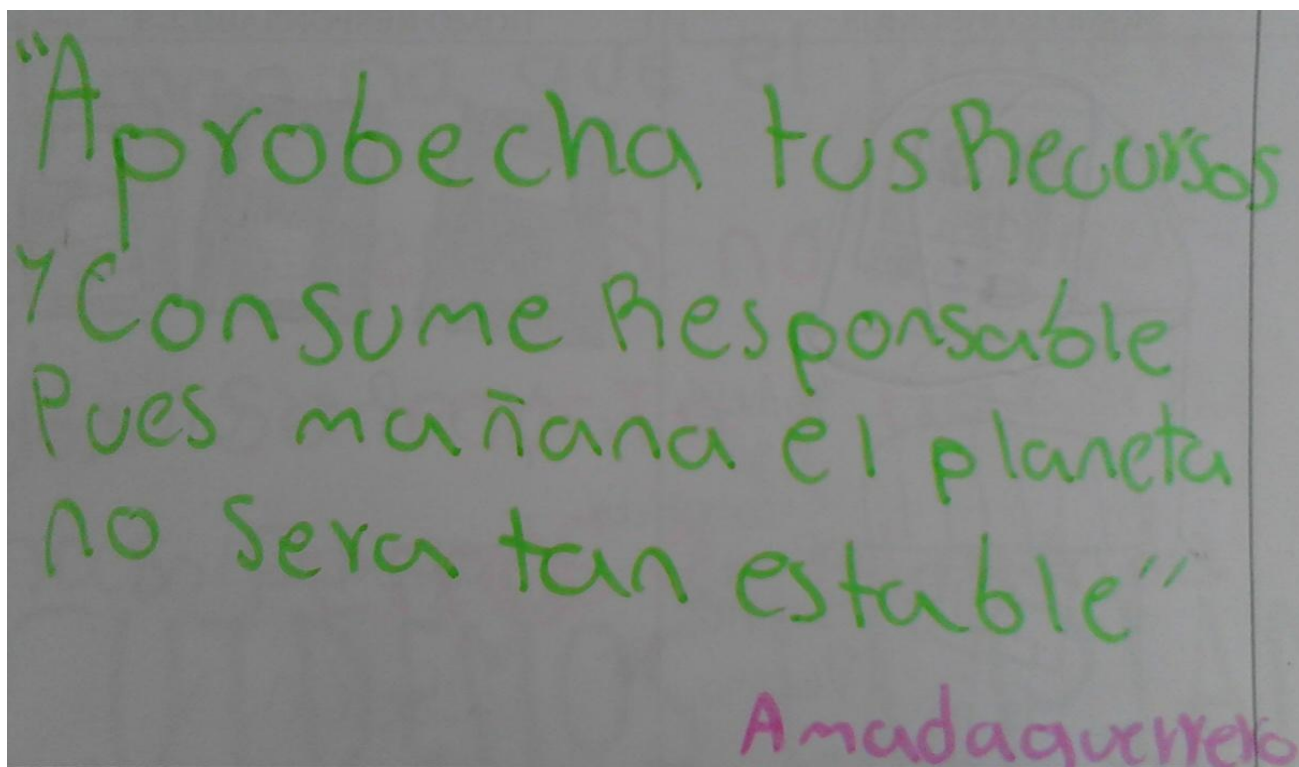 "Aprobecha tus Recursos
Y Consume Responsable
Pues mañana el planeta
no Sera tan estable"
Amadaguerrero